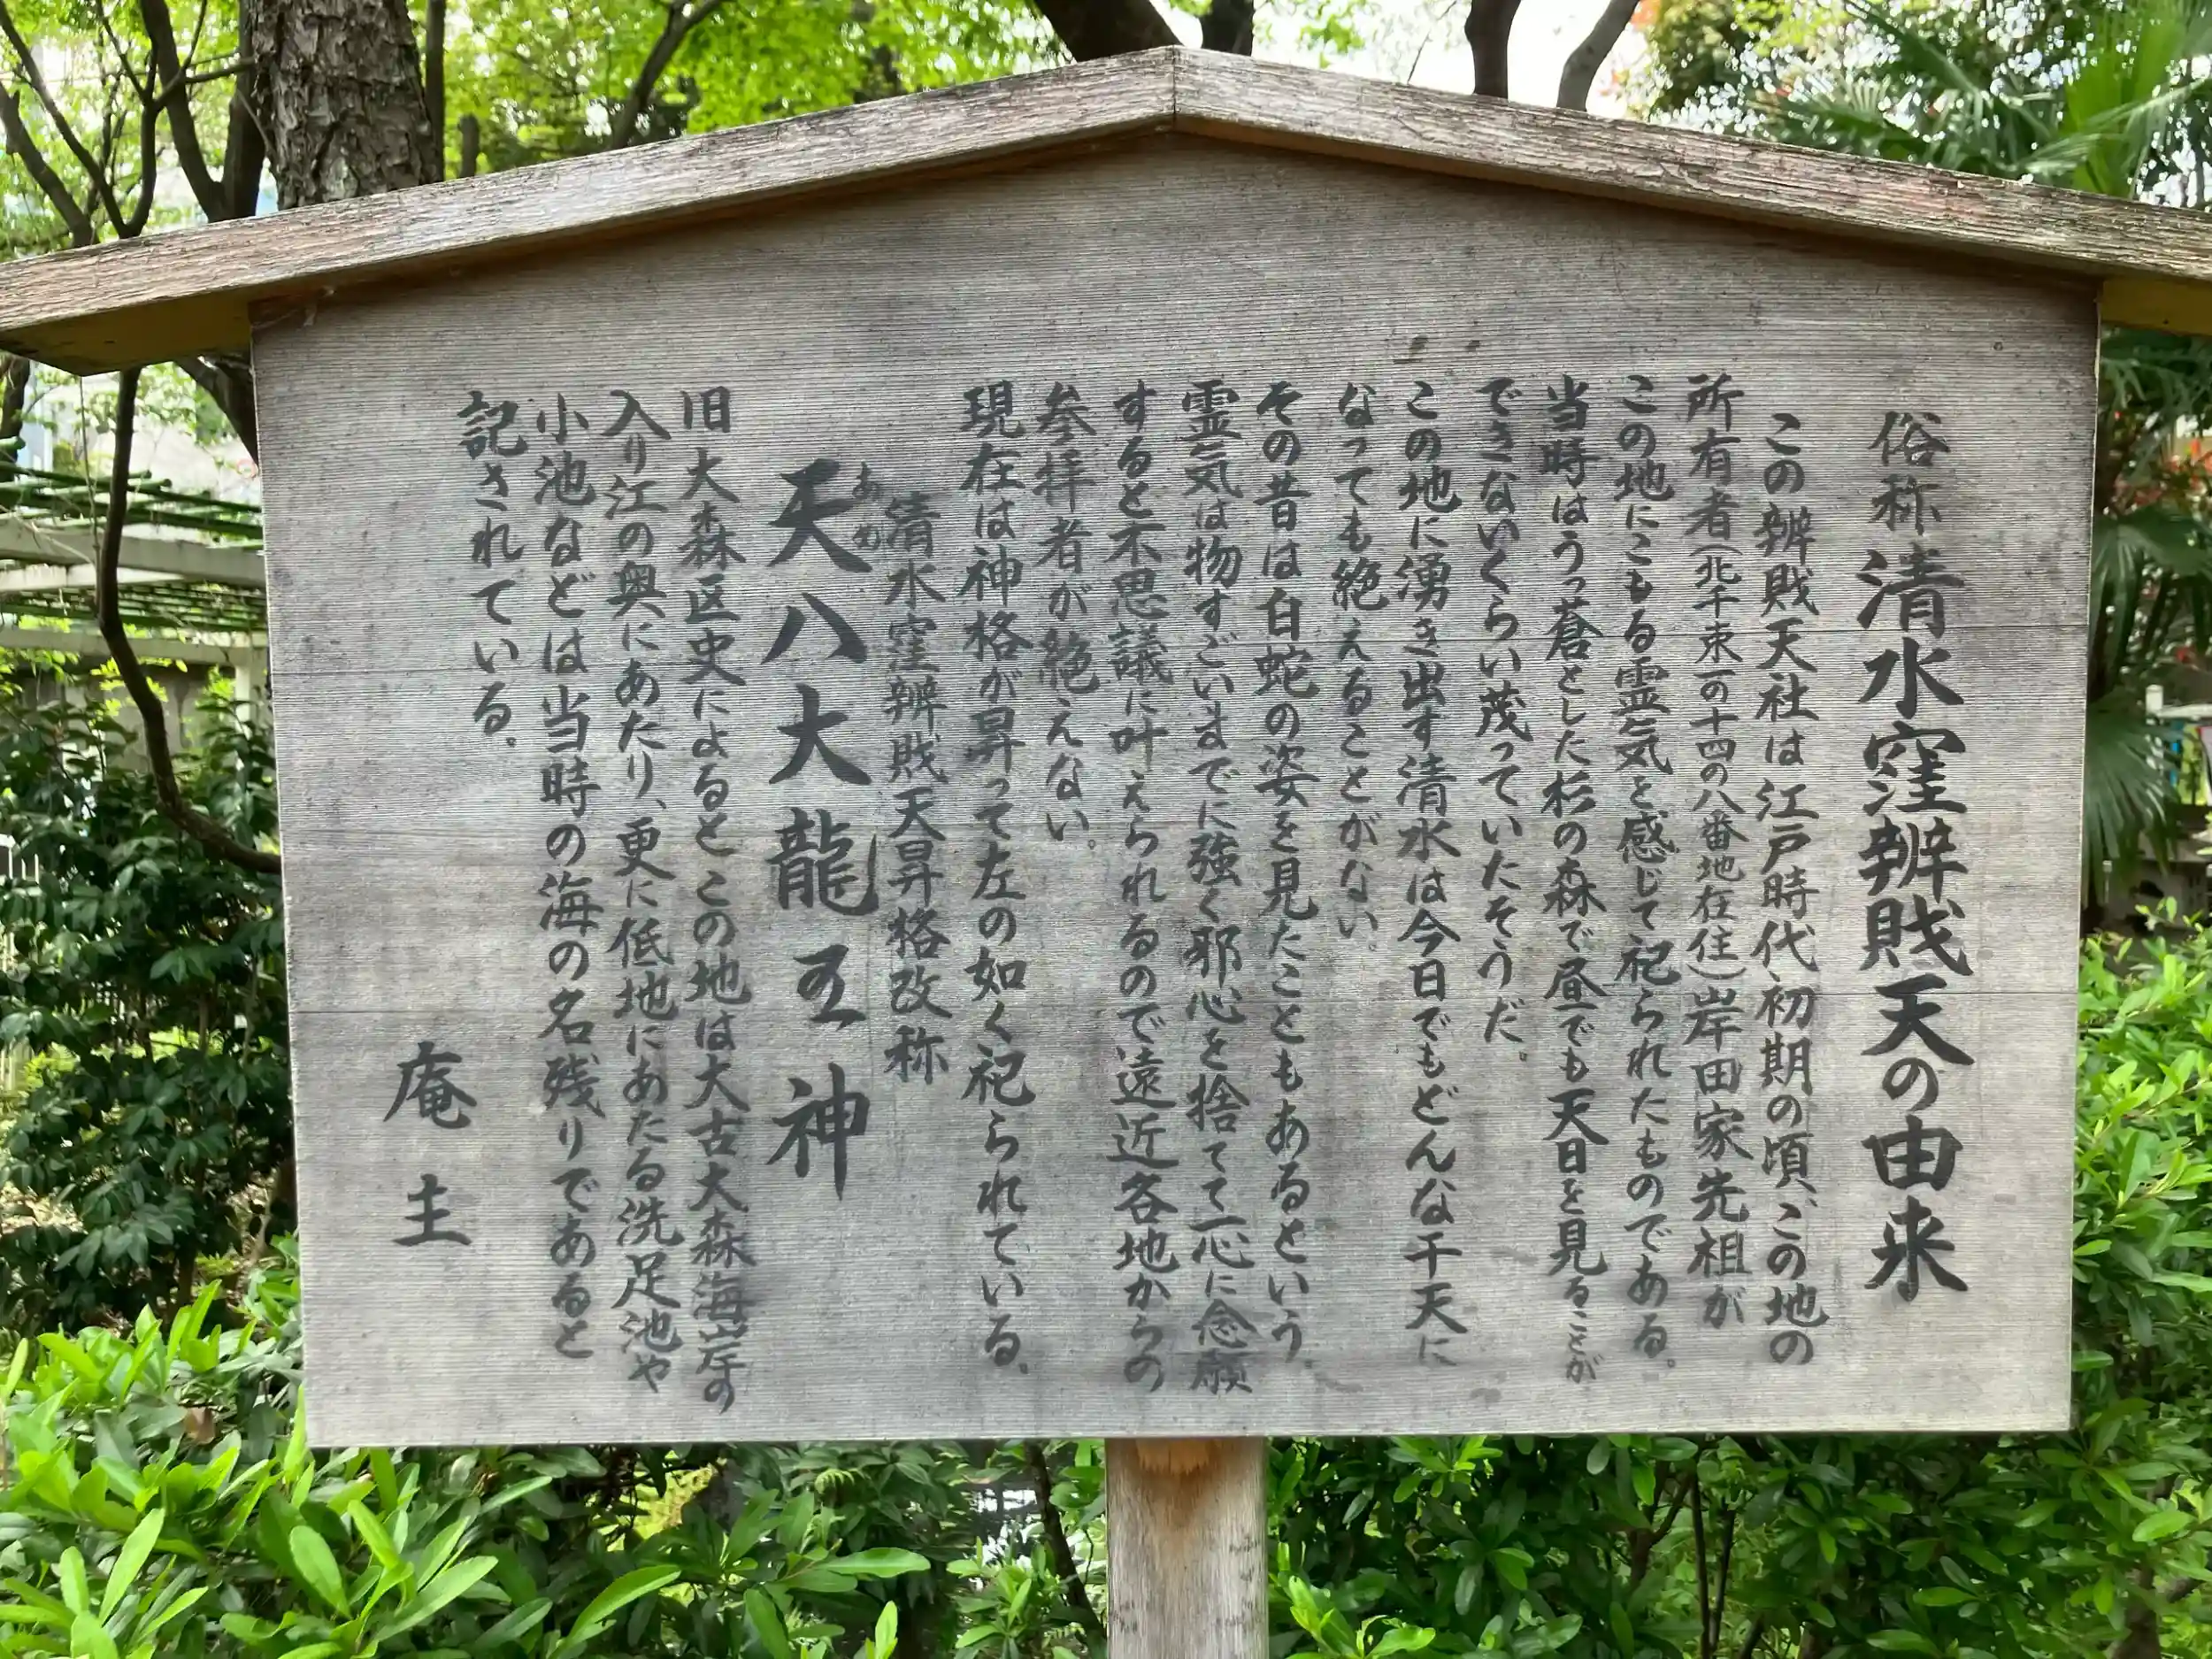 俗称 清水窪辨財天の由来
この辨財天社は江戸時代、初期の頃、この地の
所有者(北千束一の十四の八番地在住)岸田家先祖が
この地にこもる霊気を感じて祀られたものである。
当時はうっ蒼とした杉の森で昼でも天日を見ることが
できないくらい茂っていたそうだ。
この地に湧き出す清水は今日でもどんな干天に
なっても絶えることがない。
その昔は白蛇の姿を見たこともあるという。
霊気は物すごいまでに強く邪心を捨てて一心に念願
すると不思議に叶えられるので遠近各地からの
参拝者が絶えない。
現在は神格が昇って左の如く祀られている。
清水窪辨財天昇格改称
あめ
天八大龍王神
旧大森区史によるとこの地は大古大森海岸の
入り江の奥にあたり、更に低地にあたる洗足池や
小池などは当時の海の名残りであると
記されている。
庵主